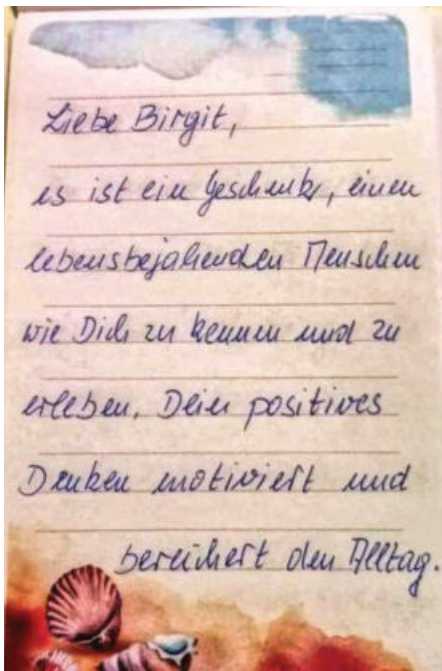 Liebe Birgit,
es ist ein Geschenk, einen
lebensbejahenden Menschen
wie Dich zu kennen und zu
erleben. Dein positives
Denken motiviert und
bereichert den Alltag.